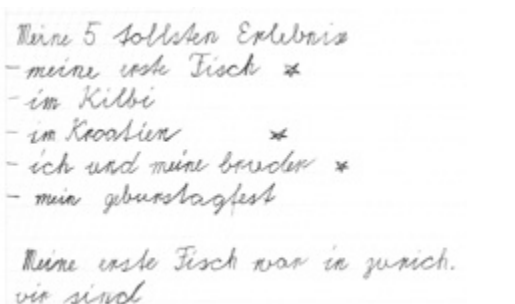 Meine 5 tollsten Erlebnise
- meine erste Fisch *
- im Kilbi
- im Kroatien *
- ich und meine bruder *
- mein geburstagfest
Meine erste Fisch war in zurich.
vir sind